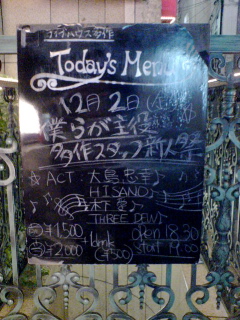 ライブハウス多作
Today's Menu
12月2日(金)
僕らが主役
多作スタッフ新人祭
☆ACT:大島忠幸♪
HISANO♪
木下愛♪
THREE DEW♪
¥1500
¥2000
+1drink
(¥500)
open 18:30
start 19:00